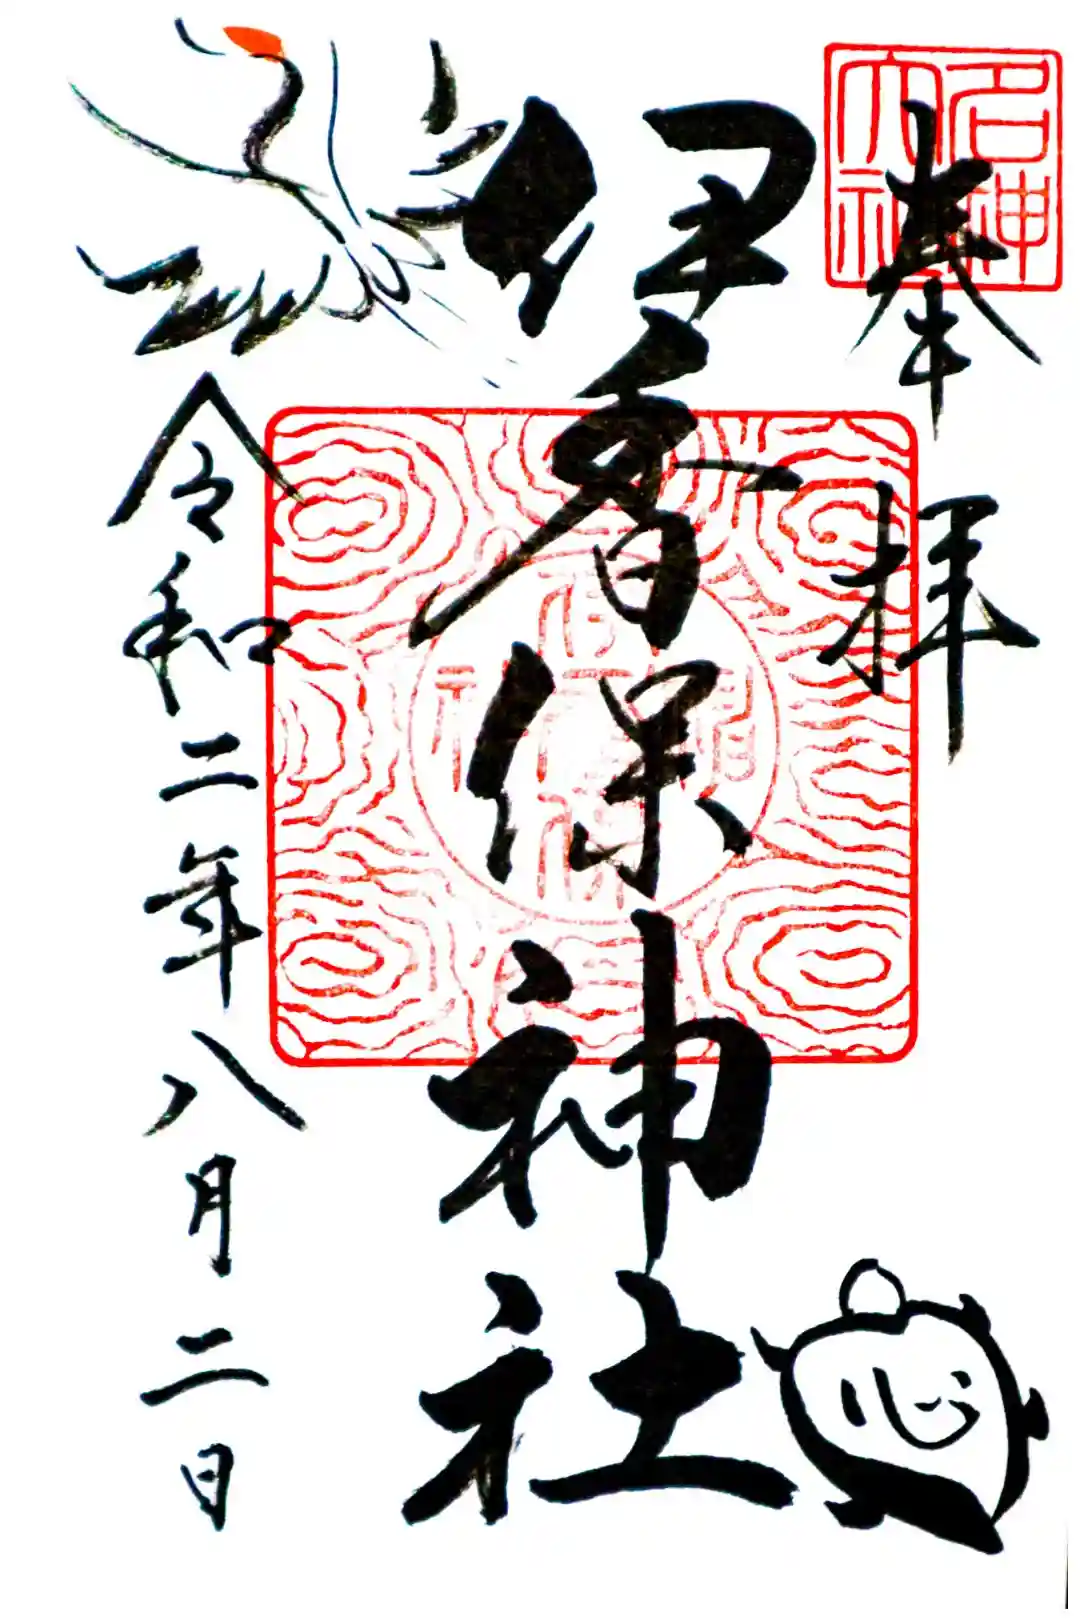 奉拝
名神大社
伊香保神社
心
令和二年八月二日